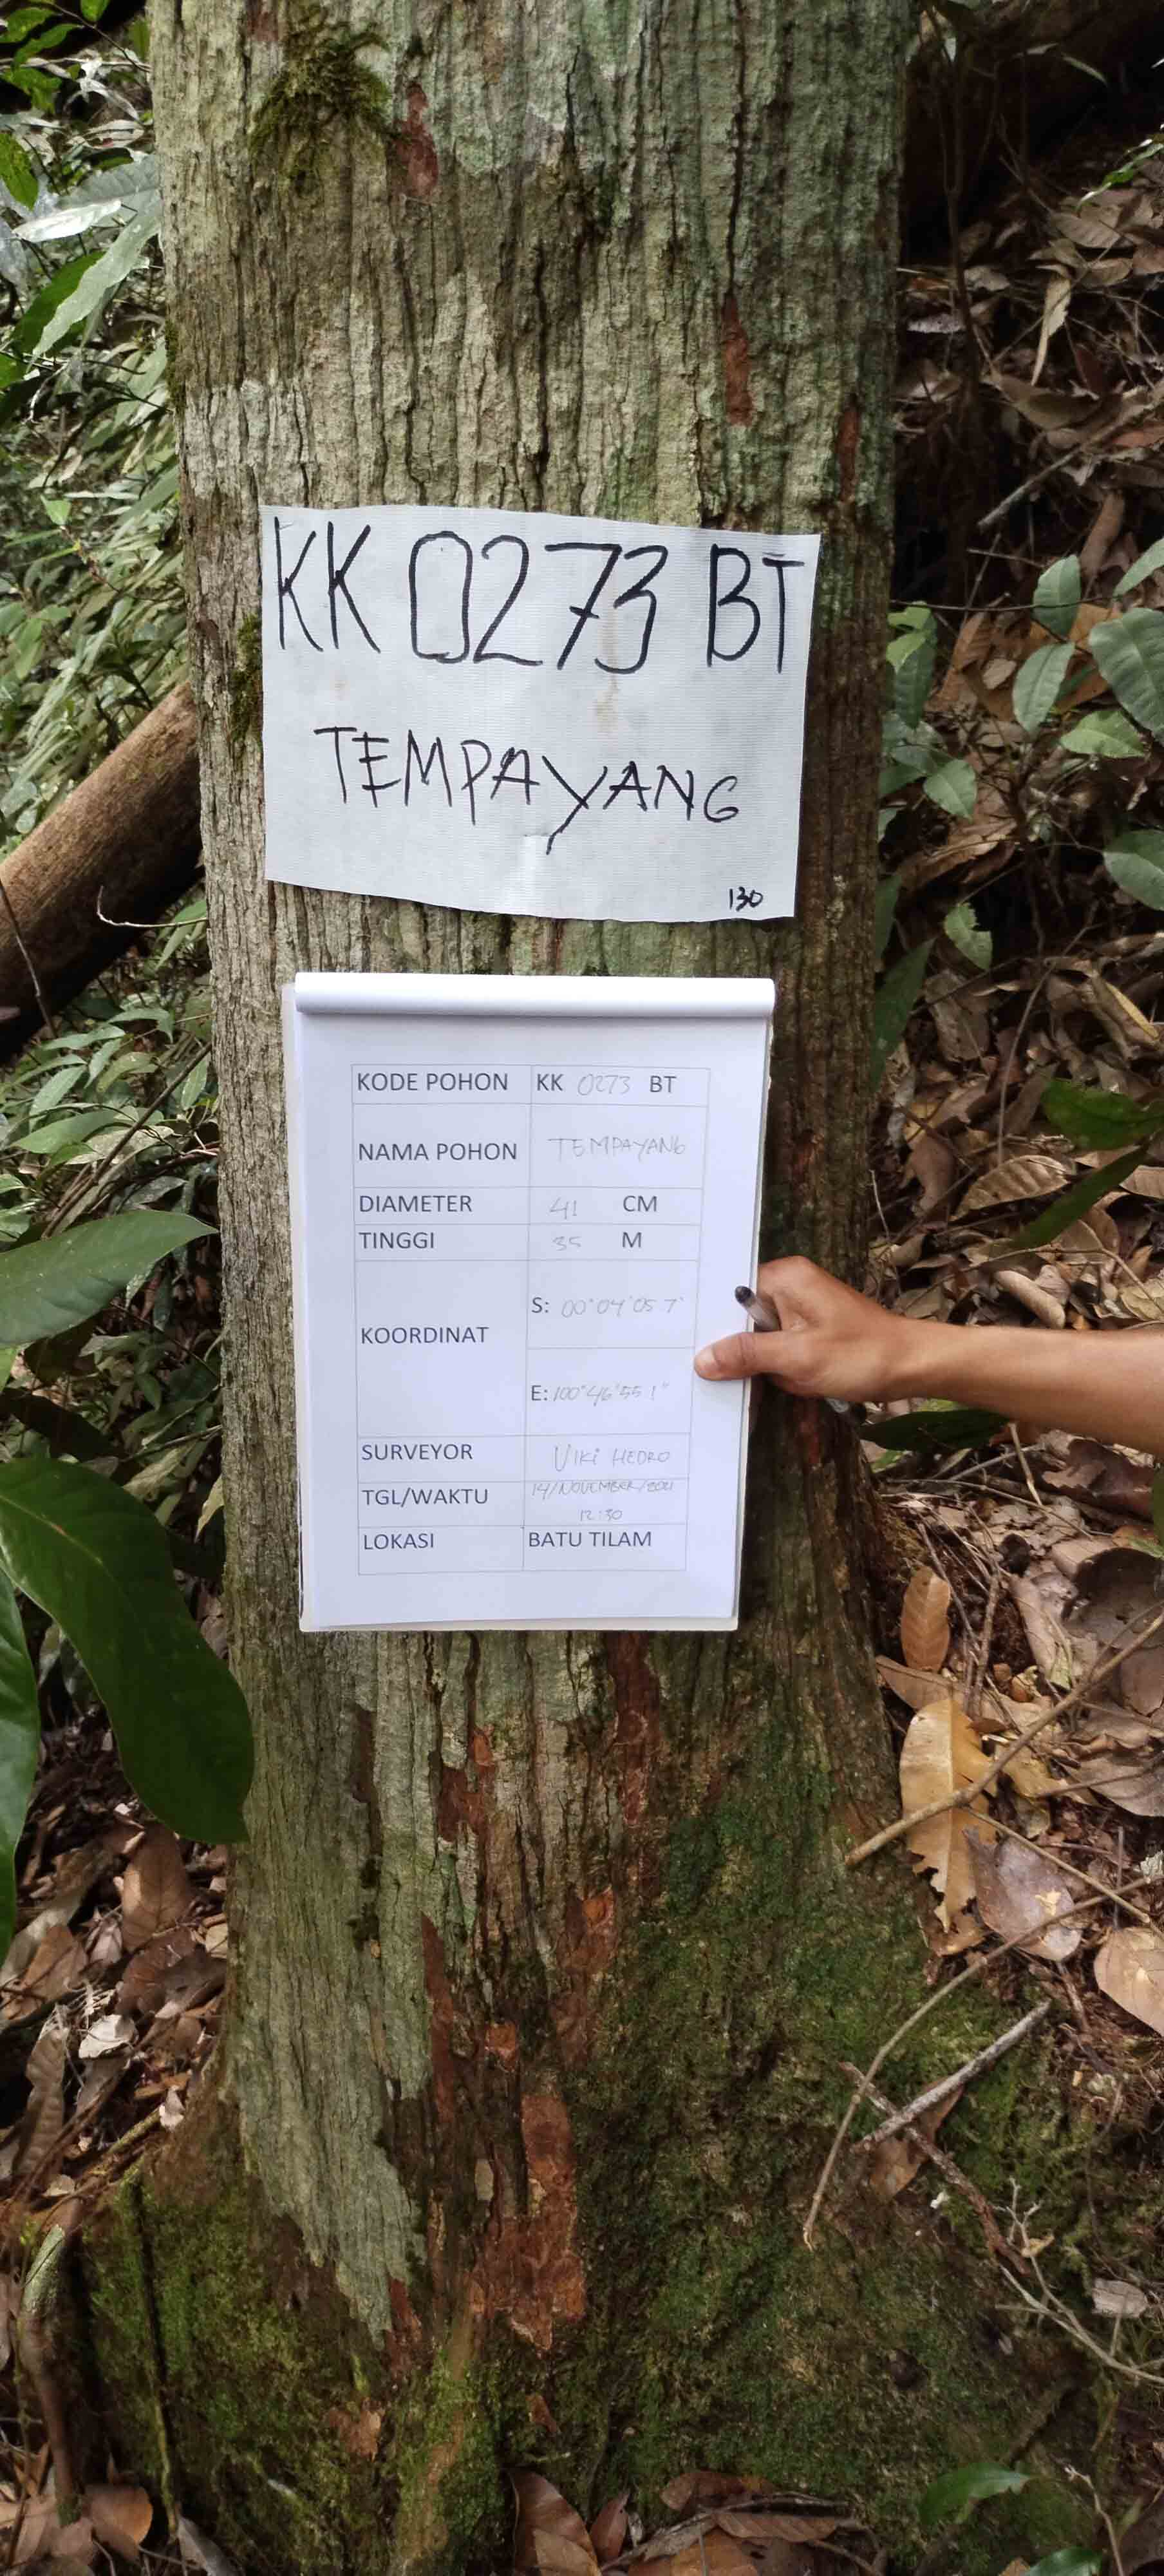 KK 0273 BT
TEMPAYANG
130
KODE POHON KK 0273 BT
NAMA POHON TEMPAYANG
DIAMETER 41 CM
TINGGI 35 M
KOORDINAT
S: 00°04'05 7"
E: 100°46'55 1"
SURVEYOR VIKI HEDRO
TGL/WAKTU 14/NOVEMBER/2021
12:30
LOKASI BATU TILAM